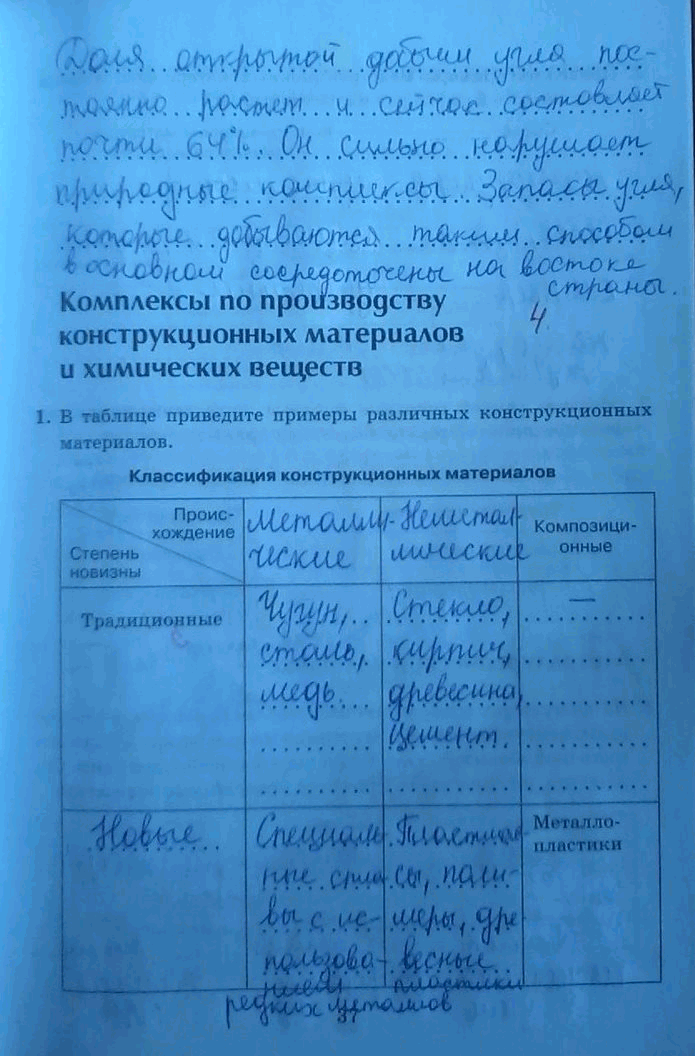 Доля открытой добычи угля пос-
тоянно растет и сейчас составляет
почти 64%. Он сильно нарушает
природные комплексы. Запасы угля,
которые добываются таким способом
в основном сосредоточены на востоке
страны.
4
Комплексы по производству
конструкционных материалов
и химических веществ
1. В таблице приведите примеры различных конструкционных
материалов.
Классификация конструкционных материалов
Проис-
хождение
Степень
новизны
Металли-
ческие
Неметал-
лические
Композици-
онные
Традиционные
Чугун,
сталь,
медь
Стекло,
кирпич,
древесина,
цемент.
—
Новые
Специаль-
ные спла
вы с ис-
пользова-
нием
редких металлов
Пластмас
сы, поли-
меры, дре
весные
пластики
Металло-
пластики